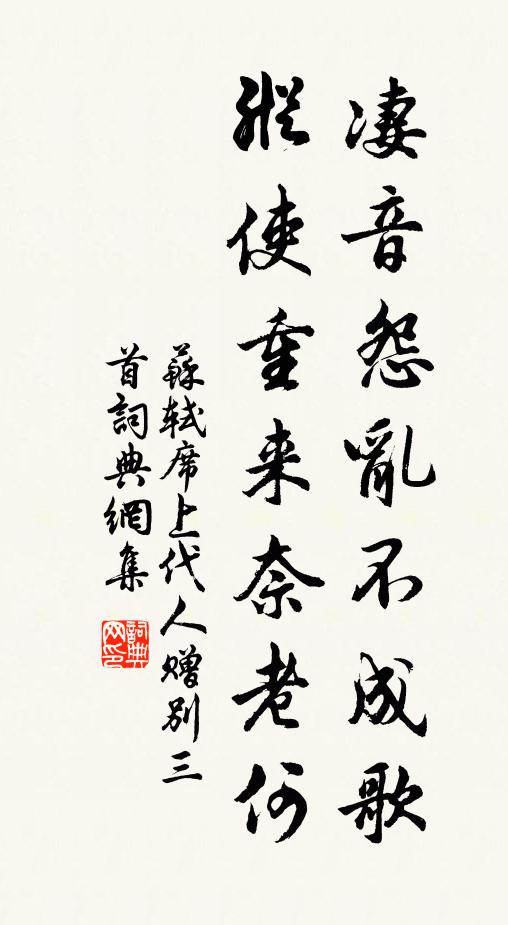 凄音怨亂不成歌
縱使重来奈老何
蘇軾席上代人贈別三
首詞典網集
詞典網印